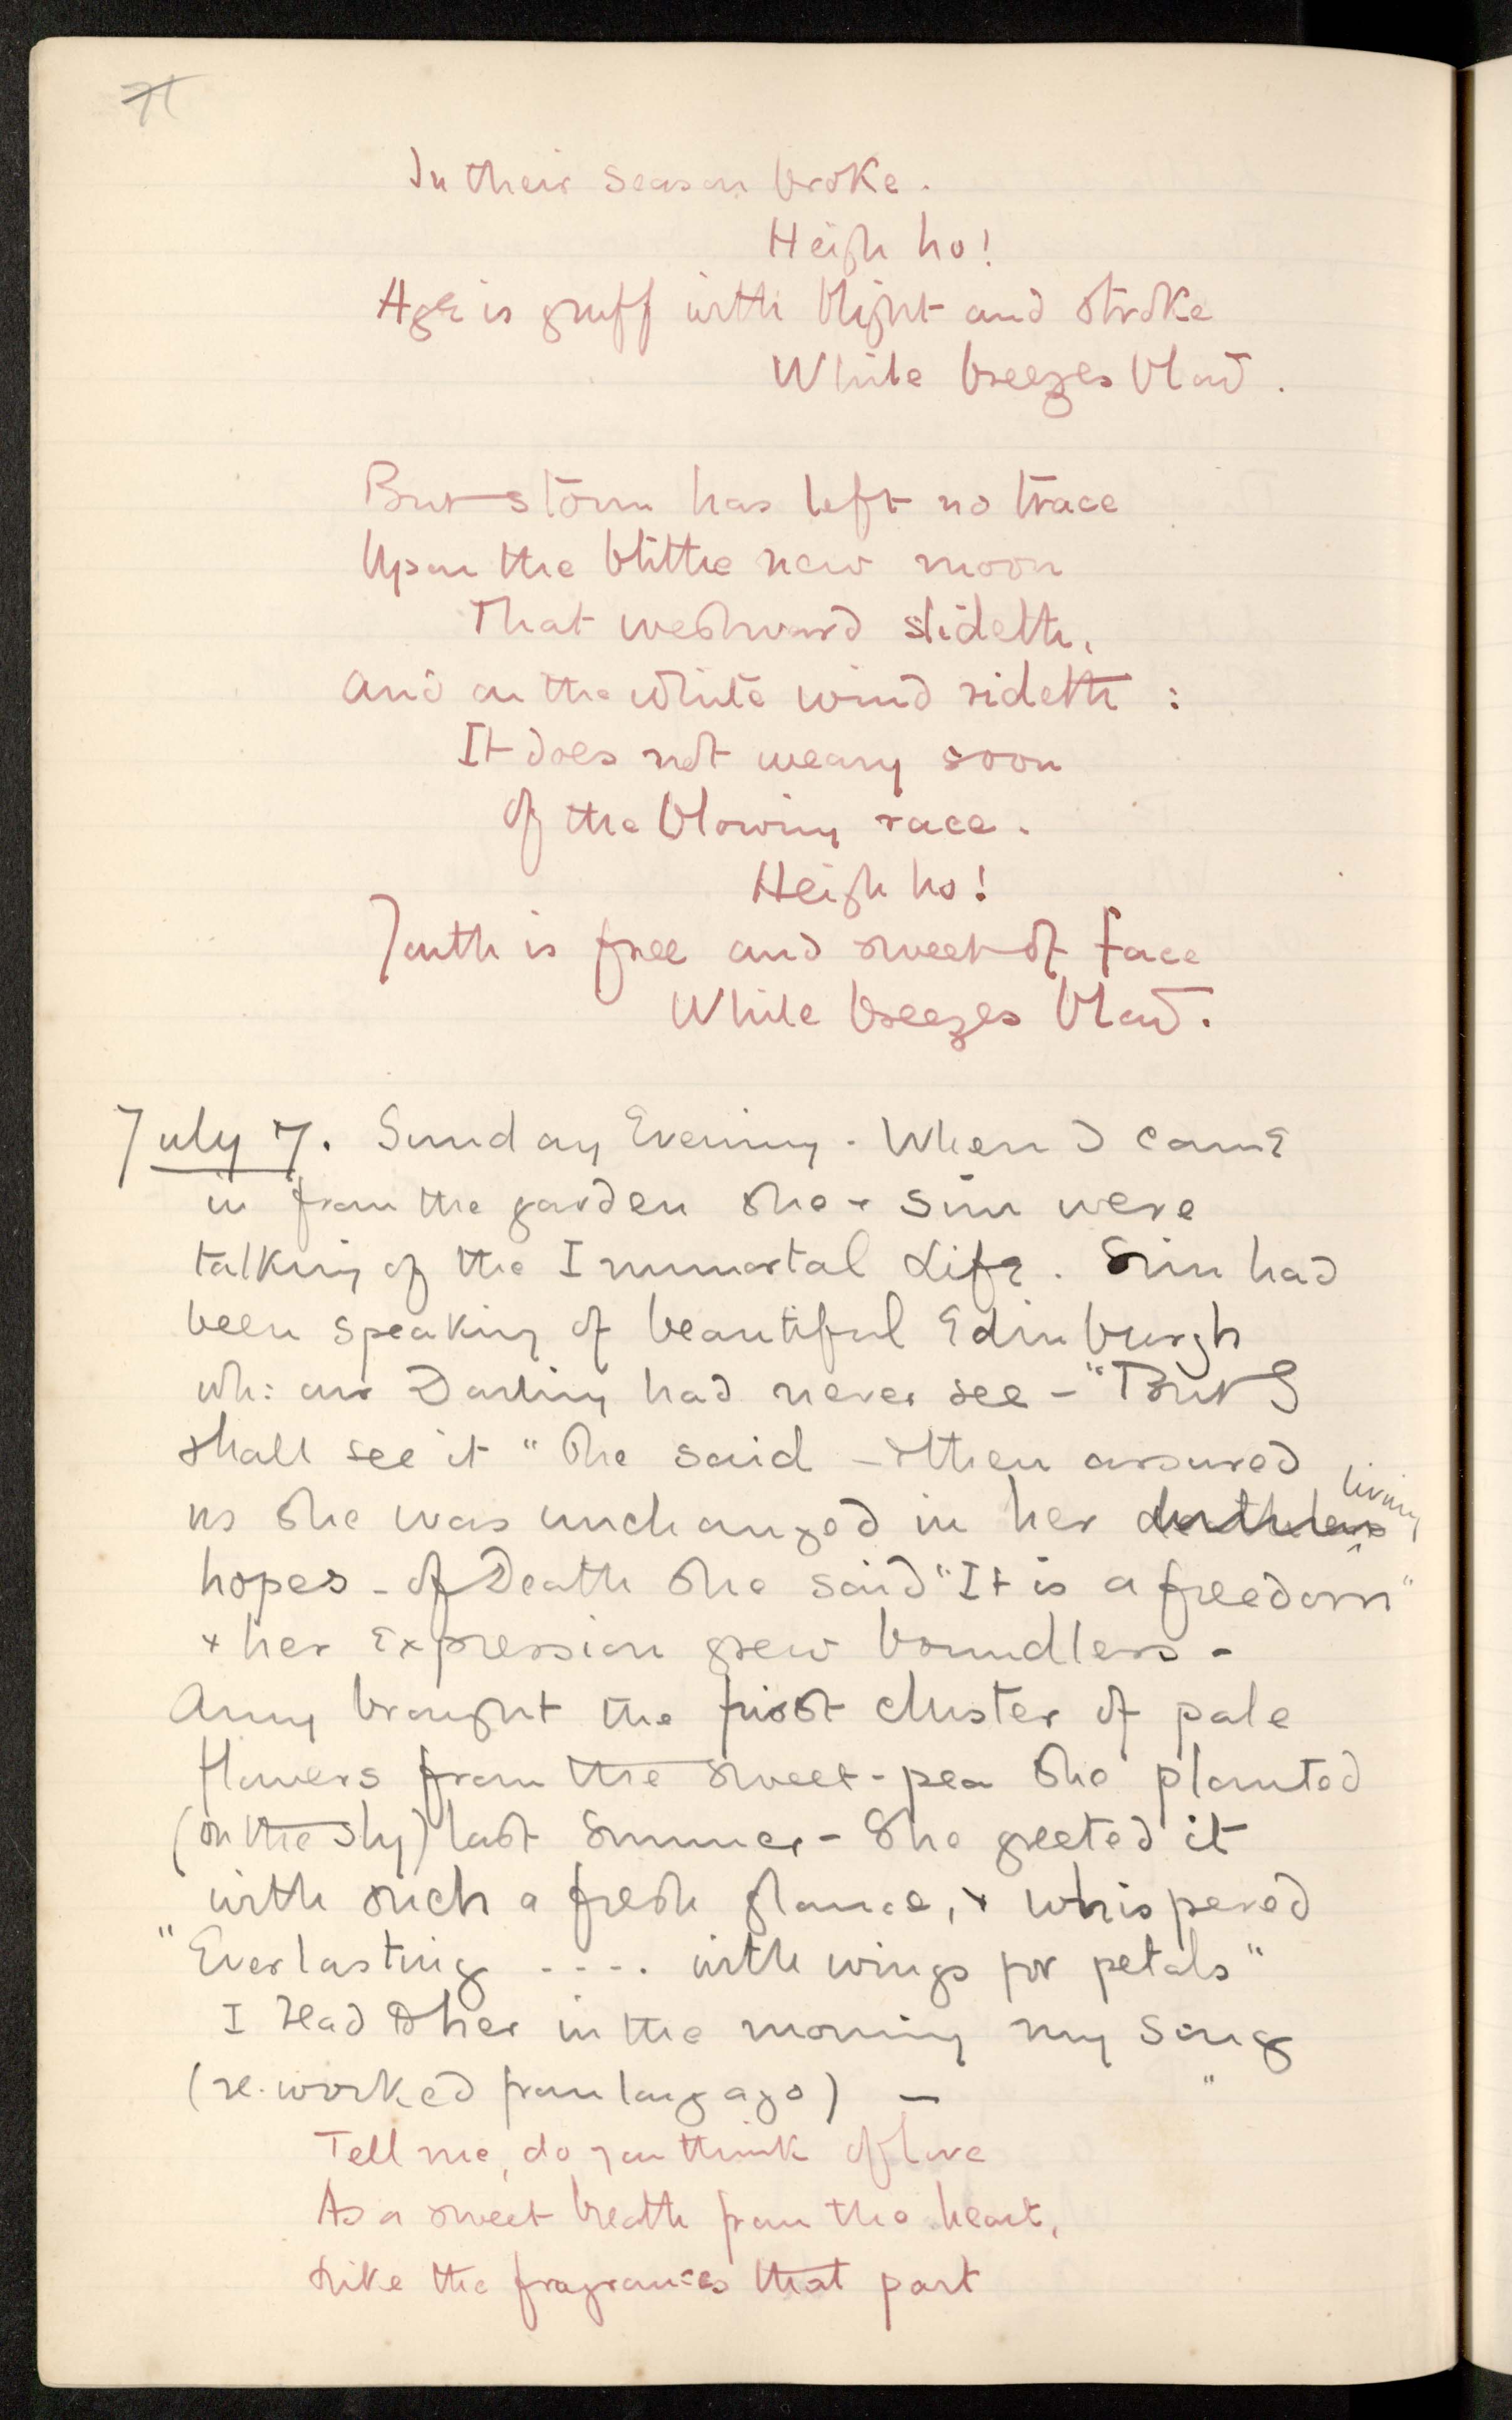 71
In their season broke.
Heigh ho!
Age is gruff with blight and stroke
While breezes blow.
But storm has left no trace
Upon the blithe new moon
That westward slideth,
And on the white wind rideth :
It does not weary soon
Of the blowing race.
Heigh ho!
Youth is free and sweet of face
While breezes blow.
July 7. Sunday Evening. When I came
in from the garden she + Sim were
talking of the Immortal Life. Sim had
been speaking of beautiful Edinburgh
wh: our Darling had never see - "But I
shall see it" she said - & then assured
us she was unchanged in her deathless living
hopes - of Death she said "It is a freedom"
+ her expression grew boundless -
Amy brought the first cluster of pale
flowers from the sweet-pea she planted
(on the sly) last Summer - She greeted it
with such a fresh glance, + whispered
"Everlasting .... with wings for petals"
I read to her in the morning my song
(re-worked from long ago) -
Tell me, do you think of love
As a sweet breath from the heart,
Like the fragrances that part